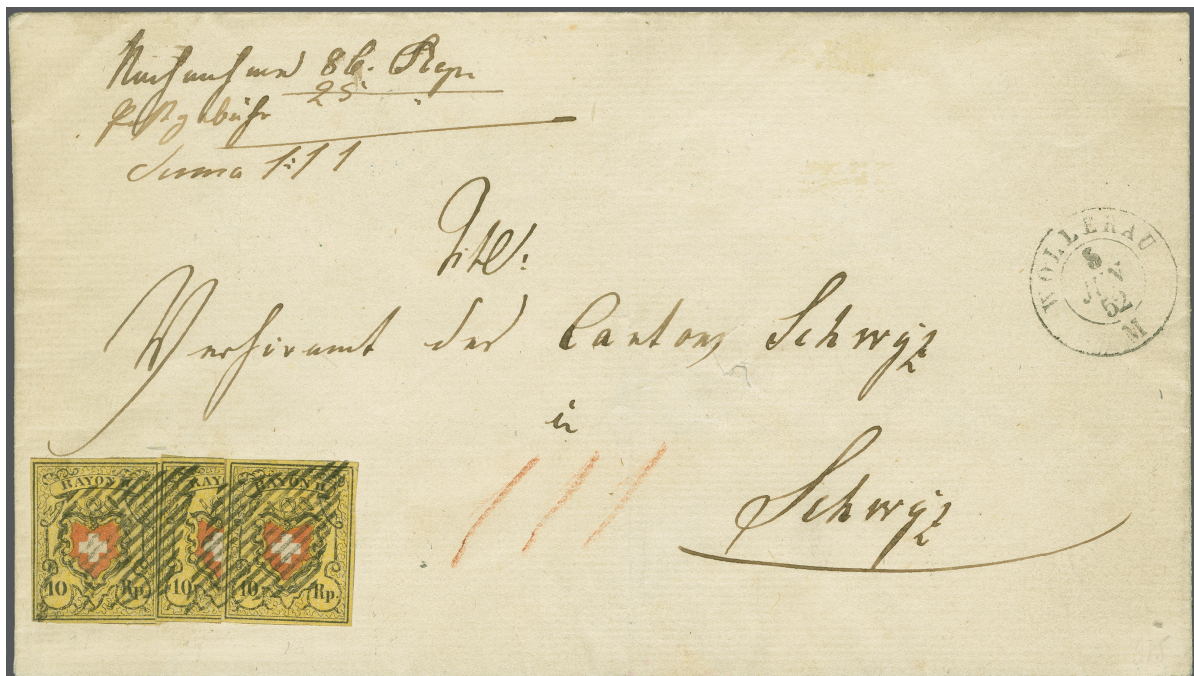 Nachnahme 86. Rpn
Postgebühr 25
Suma 1:11
Titl:
Verhöramt des Cantons Schwyz
in
Schwyz
WOLLERAU
8
JUN
52
M
RAYON II
RAY
RAYON II
10 Rp.
10
10 Rp.